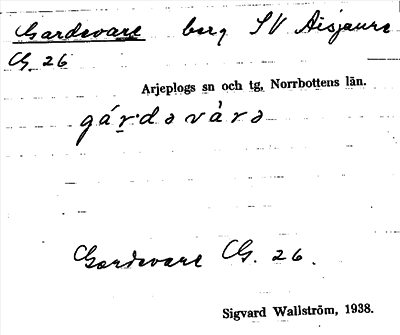 Gardevare berg SV Aisjaure
G. 26
Arjeplogs sn och tg, Norrbottens län.
gárdəvàrə
Gardevare G. 26.
Sigvard Wallström, 1938.